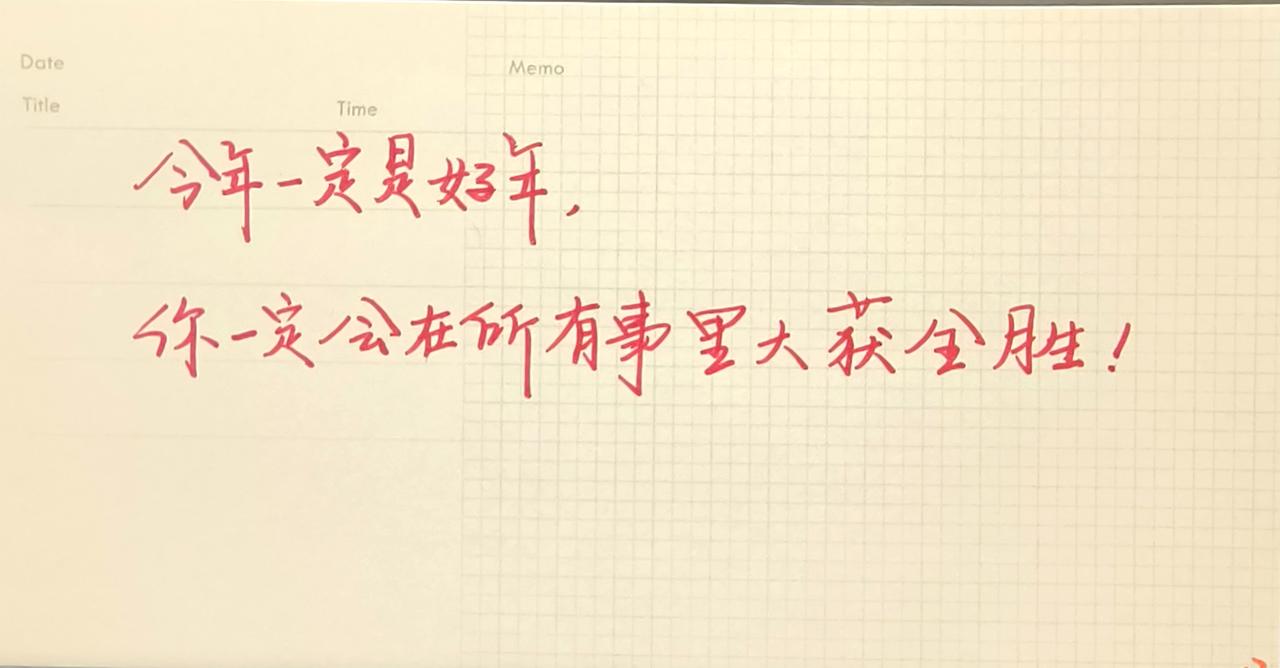 Date
Memo
Title
Time
今年一定是好年,
你一定会在所有事里大获全胜!